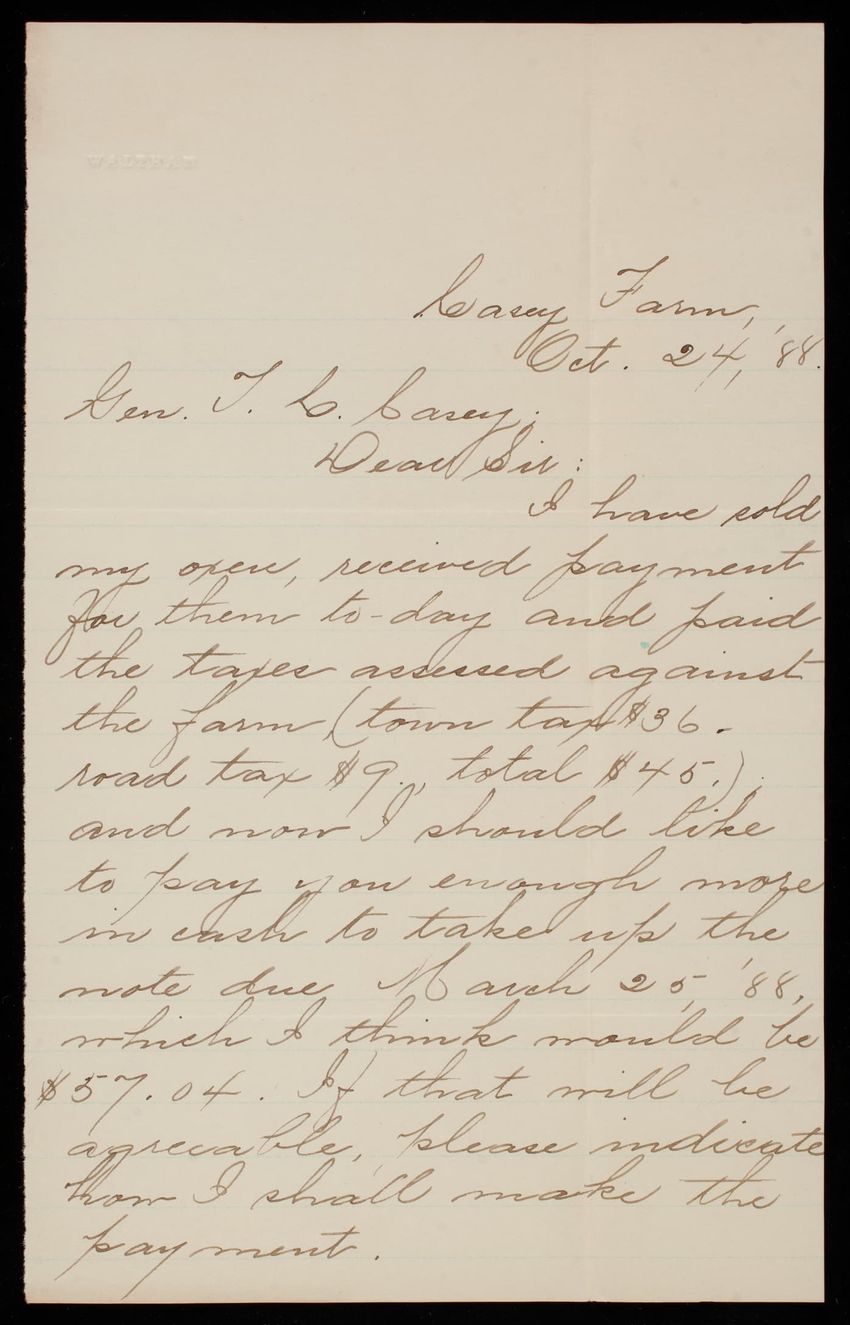 WALTHAM
Casey Farm,
Oct. 24, '88.
Gen. T. L. Casey;
Dear Sir:
I have sold
my oxen, received payment
for them to-day and paid
the taxes assessed against
the farm (town tax $36.
road tax $9., total $45.),
and now I should like
to pay you enough more
in cash to take up the
note due March 25, '88,
which I think would be
$57.04. If that will be
agreeable, please indicate
how I shall make the
payment.